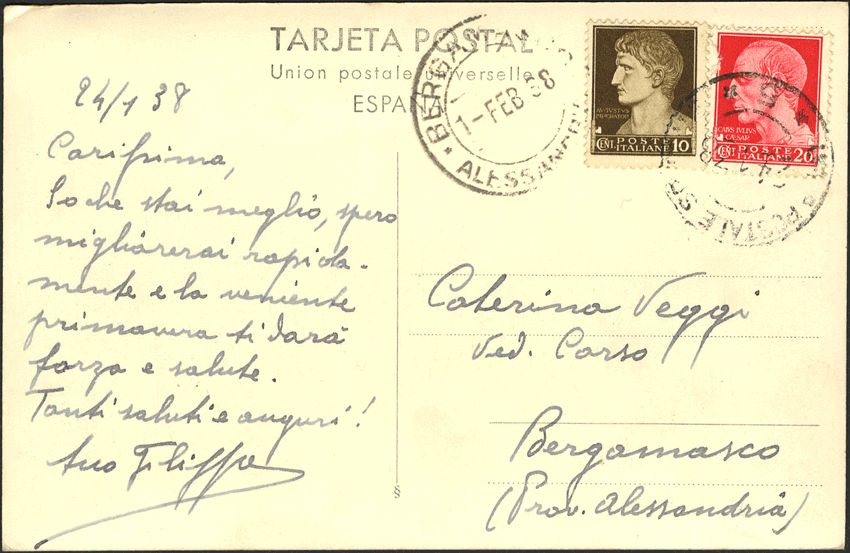 TARJETA POSTAL
Union postale universelle
ESPAÑA
24/1 38
Carissima,
So che stai meglio, spero
migliorerai rapida-
mente e la veniente
primavera ti darà
forza e salute.
Tanti saluti e auguri!
tuo Filippo
BERGAMASCO
1-FEB 38
ALESSANDRIA
AVGVSTVS
IMPERATOR
CENT. POSTE ITALIANE 10
CAIVS IVLIVS
CAESAR
CENT. POSTE ITALIANE 20
POSTALE
5
Caterina Veggi
Ved. Corso
Bergamasco
(Prov. Alessandria)